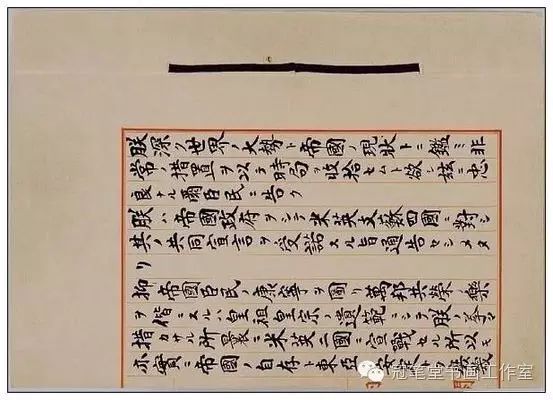 朕深ク世界ノ大勢ト帝國ノ現状トニ鑑ミ非
常ノ措置ヲ以テ時局ヲ收拾セムト欲シ茲ニ忠
良ナル爾臣民ニ告ク
朕ハ帝國政府ヲシテ米英支蘇四國ニ對シ
其ノ共同宣言ヲ受諾スル旨通告セシメタ
リ
抑〻帝國臣民ノ康寧ヲ圖リ萬邦共榮ノ樂
ヲ偕ニスルハ皇祖皇宗ノ遺範ニシテ朕ノ拳々
措カサル所曩ニ米英二國ニ宣戰セル所以モ
亦實ニ帝國ノ自存ト東亞
冠笔堂书画工作室